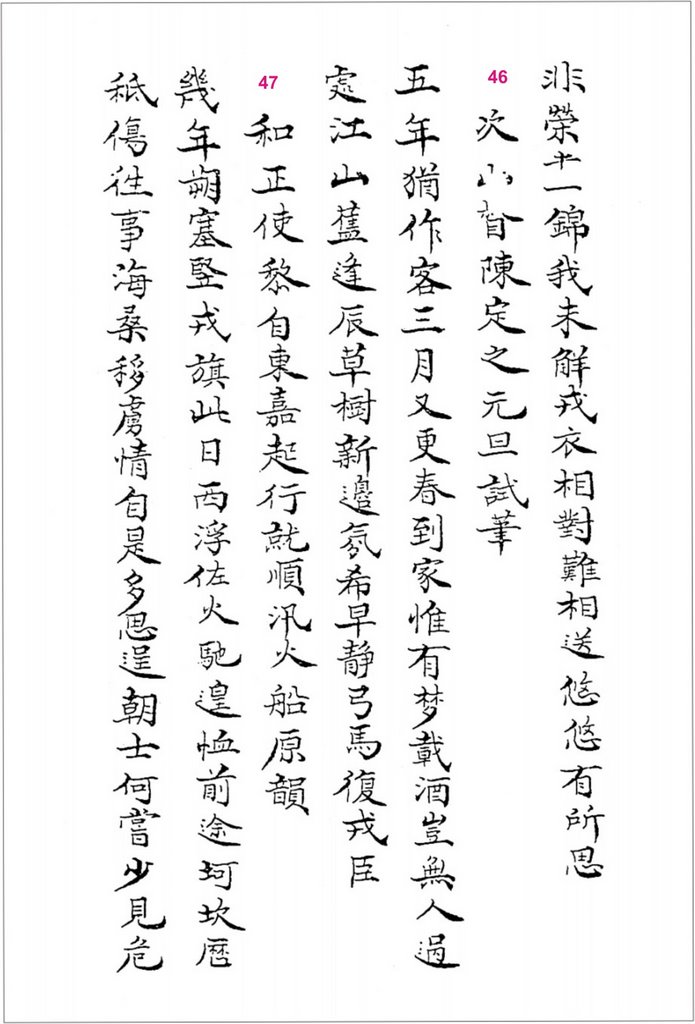 非榮十一錦我未解戎衣相對難相送悠悠有所思
46
次山督陳定之元旦試筆
五年猶作客三月又更春到家惟有梦載酒豈無人過
處江山舊逢辰草樹新邊氛希早静弓馬復戎臣
47
和正使黎自東嘉起行就順汛火船原韻
幾年朔塞竪戎旗此日西浮佐火馳遑恤前途坷坎歷
秪傷往事海桑移虜情自是多思逞朝士何嘗少見危